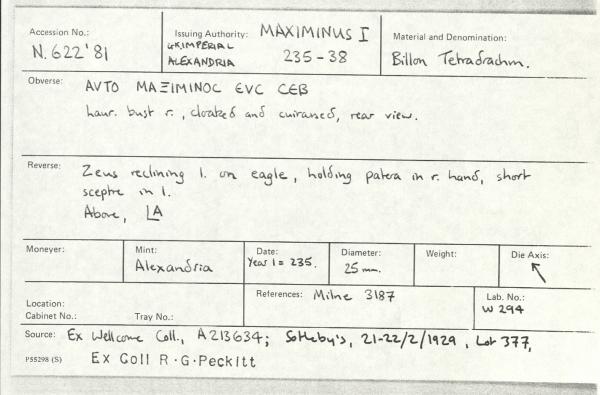 Accession No.:
N.622'81
Issuing Authority: MAXIMINUS I
GK.IMPERIAL
ALEXANDRIA 235-38
Material and Denomination:
Billon Tetradrachm.
Obverse: AVTO MAΞIMINOC EVC CEB
laur. bust r., cloaked and cuirassed, rear view.
Reverse: Zeus reclining l. on eagle, holding patera in r. hand, short
sceptre in l.
Above, LA
Moneyer:
Mint:
Alexandria
Date:
Year 1 = 235.
Diameter:
25 mm.
Weight:
Die Axis:
↖
Location:
Cabinet No.: Tray No.:
References: Milne 3187
Lab. No.:
W 294
Source: Ex Wellcome Coll., A213634; Sotheby's, 21-22/2/1929, Lot 377,
P55298 (S) Ex Coll R.G.Peckitt